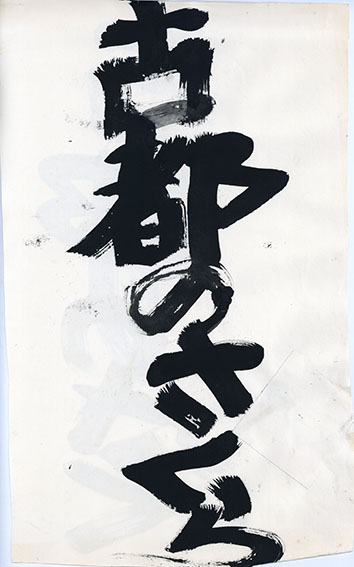 古都のさくら